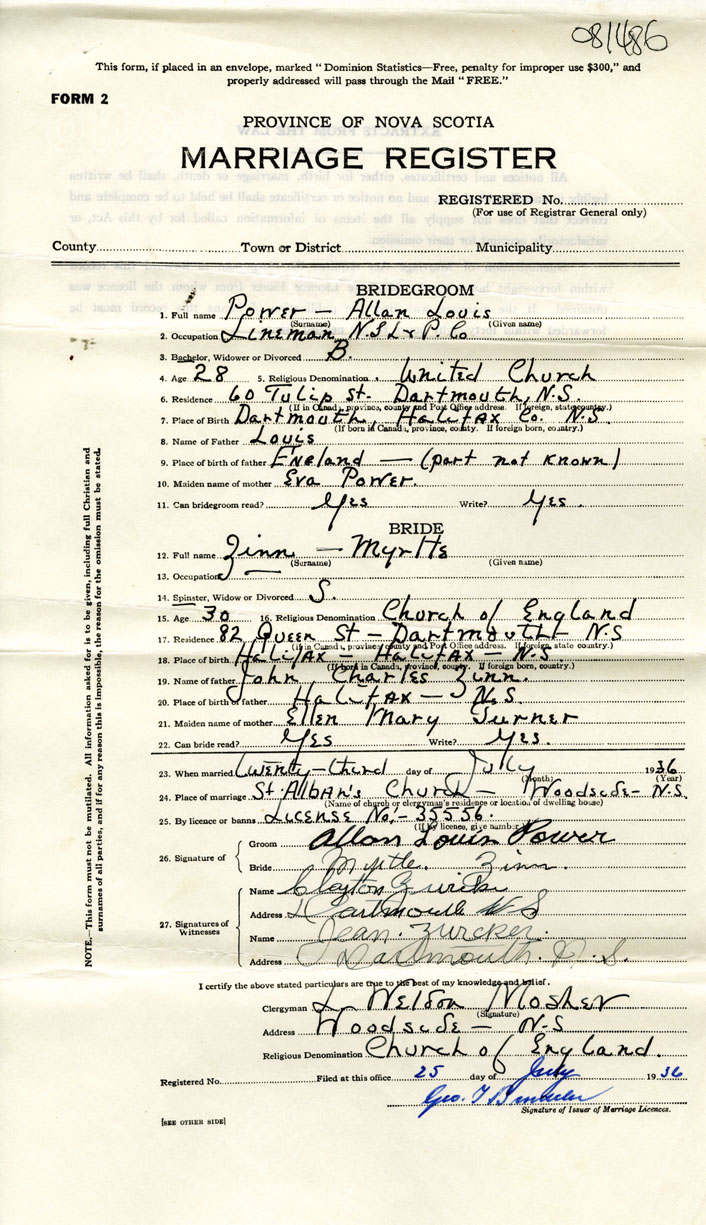 081486
This form, if placed in an envelope, marked "Dominion Statistics—Free, penalty for improper use $300," and
properly addressed will pass through the Mail "FREE."
FORM 2
PROVINCE OF NOVA SCOTIA
MARRIAGE REGISTER
REGISTERED No.
(For use of Registrar General only)
County Town or District Municipality
BRIDEGROOM
1. Full name Power — Allan Louis
(Surname) (Given name)
2. Occupation Lineman N.S.L & P. Co
3. Bachelor, Widower or Divorced B.
4. Age 28 5. Religious Denomination United Church
6. Residence 60 Tulip St- Dartmouth, N.S.
(If in Canada, province, county and Post Office address. If foreign, state country.)
7. Place of Birth Dartmouth, Halifax Co. N.S.
(If born in Canada, province, county. If foreign born, country.)
8. Name of Father Louis
9. Place of birth of father England — (part not known)
10. Maiden name of mother Eva Power.
11. Can bridegroom read? Yes Write? Yes.
BRIDE
12. Full name Zinn — Myrtle
(Surname) (Given name)
13. Occupation —
14. Spinster, Widow or Divorced S.
15. Age 30 16. Religious Denomination Church of England
17. Residence 82 Queen St — Dartmouth - N.S
(If in Canada, province county and Post Office address. If foreign, state country.)
18. Place of birth Halifax — Halifax — N.S.
(If born in Canada, province, county. If foreign born, country.)
19. Name of father John Charles Zinn.
20. Place of birth of father Halifax — N.S.
21. Maiden name of mother Ellen Mary Turner
22. Can bride read? Yes Write? Yes.
23. When married Twenty-third day of July 1936
(Month) (Year)
24. Place of marriage St. Alban's Church — Woodside - N.S.
(Name of church or clergyman's residence or location of dwelling house)
25. By licence or banns License No.- 35556.
(If by licence, give number)
26. Signature of
Groom Allan Louis Power
Bride Myrtle. Zinn.
27. Signatures of Witnesses
Name Clayton Zurcker
Address Dartmouth N S
Name Jean. Zurcker.
Address Dartmouth. N. S.
I certify the above stated particulars are true to the best of my knowledge and belief.
Clergyman L. Weldon Mosher
(Signature)
Address Woodside — N.S
Religious Denomination Church of England.
Registered No. Filed at this office 25 day of July 1936
Geo. T
Signature of Issuer of Marriage Licences.
[SEE OTHER SIDE]
NOTE.—This form must not be mutilated. All information asked for is to be given, including full Christian and
surnames of all parties, and if for any reason this is impossible, the reason for the omission must be stated.